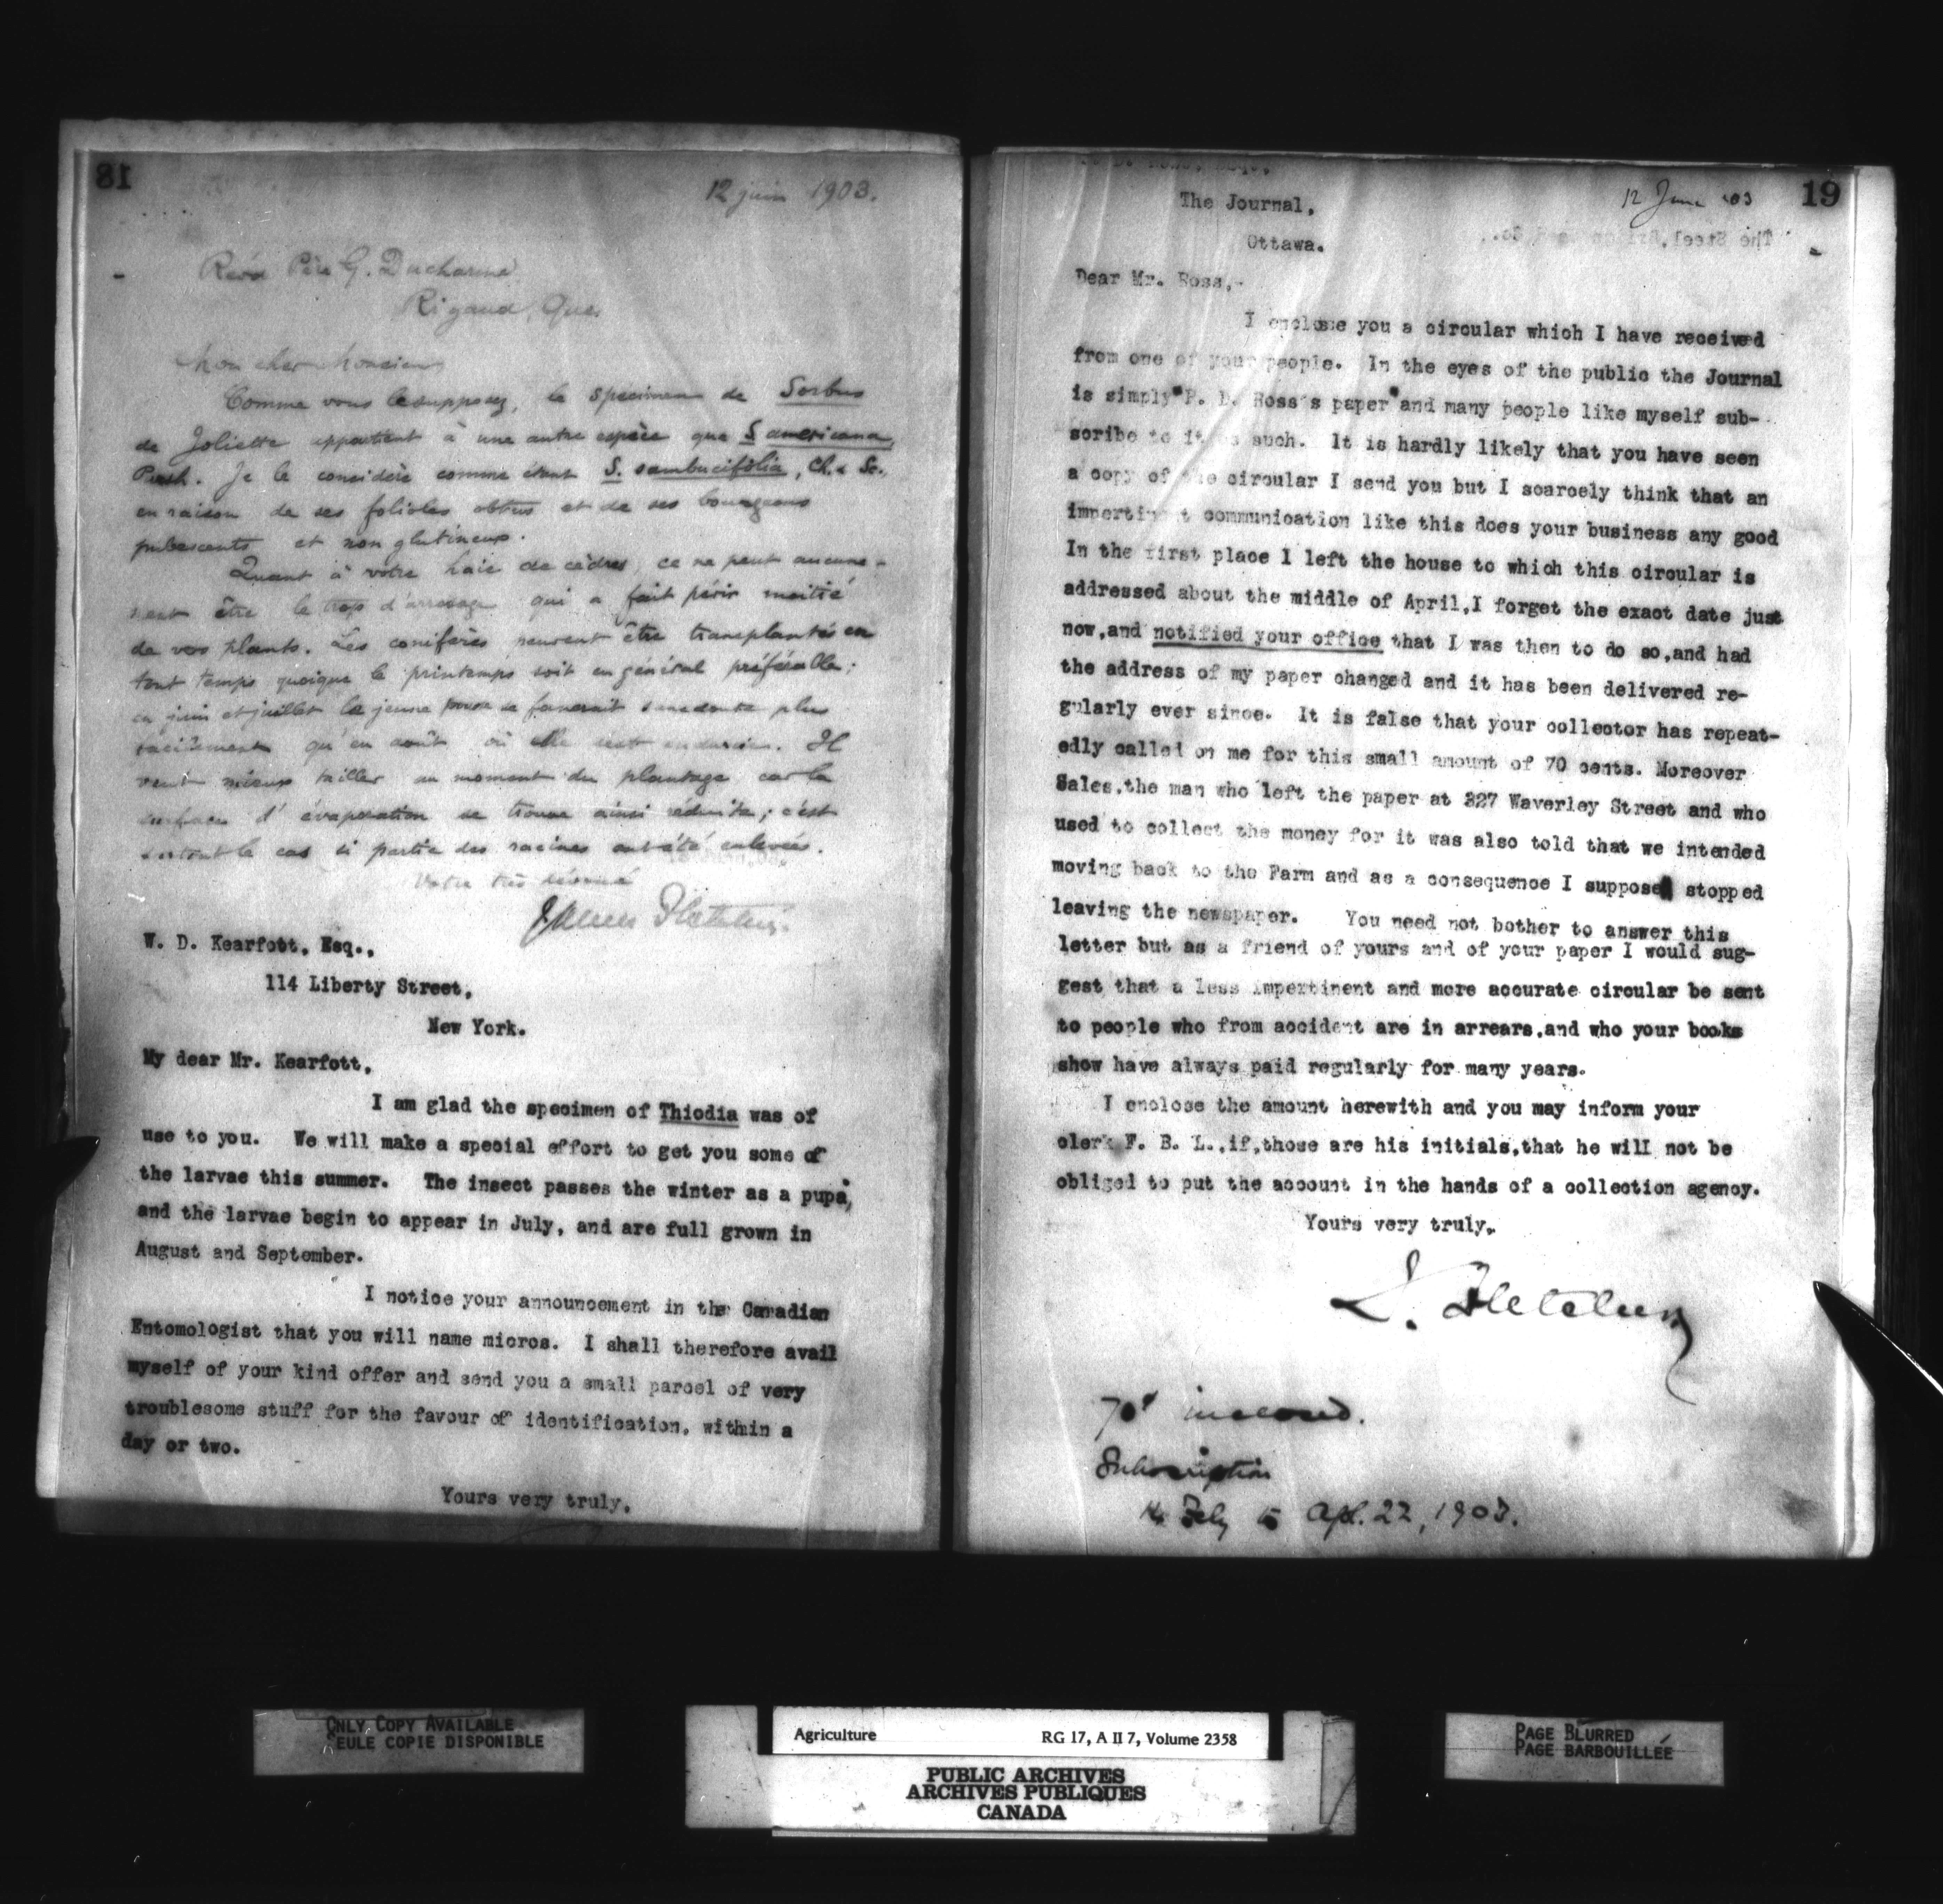 18
12 juin 1903.
Révd Père G. Ducharme
Rigaud, Que.
Mon cher Monsieur
Comme vous le supposez, le specimen de Sorbus
de Joliette appartient à une autre espèce que S. americana,
Pursh. Je le considère comme étant S. sambucifolia, Ch. & Sc.
en raison de ses folioles obtus et de ses bourgeons
pubescents et non glutineux.
Quant à votre haie de cèdres, ce ne peut aucune-
ment être le trop d'arrosage qui a fait périr moitié
de vos plants. Les conifères peuvent être transplantés en
tout temps quoique le printemps soit en général préférable;
en juin et juillet la jeune pousse se fanerait sans doute plus
facilement qu'en août où elle est endurcie. Il
vaut mieux tailler au moment du plantage car la
surface d'évaporation se trouve ainsi réduite; c'est
surtout le cas si partie des racines ont été enlevées.
Votre très dévoué
James Fletcher.
W. D. Kearfott, Esq.,
114 Liberty Street,
New York.
My dear Mr. Kearfott,
I am glad the specimen of Thiodia was of
use to you. We will make a special effort to get you some of
the larvae this summer. The insect passes the winter as a pupa,
and the larvae begin to appear in July, and are full grown in
August and September.
I notice your announcement in the Canadian
Entomologist that you will name micros. I shall therefore avail
myself of your kind offer and send you a small parcel of very
troublesome stuff for the favour of identification, within a
day or two.
Yours very truly,
12 June '03
19
The Journal,
Ottawa.
The Steel,
Dear Mr. Ross,-
I enclose you a circular which I have received
from one of your people. In the eyes of the public the Journal
is simply "P. D. Ross's paper" and many people like myself sub-
scribe to it as such. It is hardly likely that you have seen
a copy of the circular I send you but I scarcely think that an
impertinent communication like this does your business any good
In the first place I left the house to which this circular is
addressed about the middle of April, I forget the exact date just
now, and notified your office that I was then to do so, and had
the address of my paper changed and it has been delivered re-
gularly ever since. It is false that your collector has repeat-
edly called on me for this small amount of 70 cents. Moreover
Sales, the man who left the paper at 327 Waverley Street and who
used to collect the money for it was also told that we intended
moving back to the Farm and as a consequence I suppose stopped
leaving the newspaper. You need not bother to answer this
letter but as a friend of yours and of your paper I would sug-
gest that a less impertinent and more accurate circular be sent
to people who from accident are in arrears, and who your books
show have always paid regularly for many years.
I enclose the amount herewith and you may inform your
clerk F. B. L., if, those are his initials, that he will not be
obliged to put the account in the hands of a collection agency.
Yours very truly,
J. Fletcher
70¢ inclosed.
Subscription
14 Feby to Apl. 22, 1903.
ONLY COPY AVAILABLE
SEULE COPIE DISPONIBLE
Agriculture RG 17, A II 7, Volume 2358
PUBLIC ARCHIVES
ARCHIVES PUBLIQUES
CANADA
PAGE BLURRED
PAGE BARBOUILLÉE